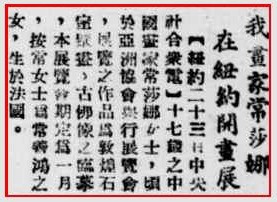 我畫家常莎娜
在紐約開畫展
【紐約二十三日中央
社合衆電】十七歲之中
國畫家常莎娜女士,頃
於亞洲協會舉行展覽會
,展覽之作品爲敦煌石
窟壁畫,古佛像之臨摹
,本展覽會期定爲一月
,按常女士爲常書鴻之
女,生於法國。